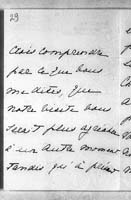 29
crois comprendre
par ce que vous
me dites, que
notre visite vous
sera plus agréable
à un autre moment
tandis qu'à